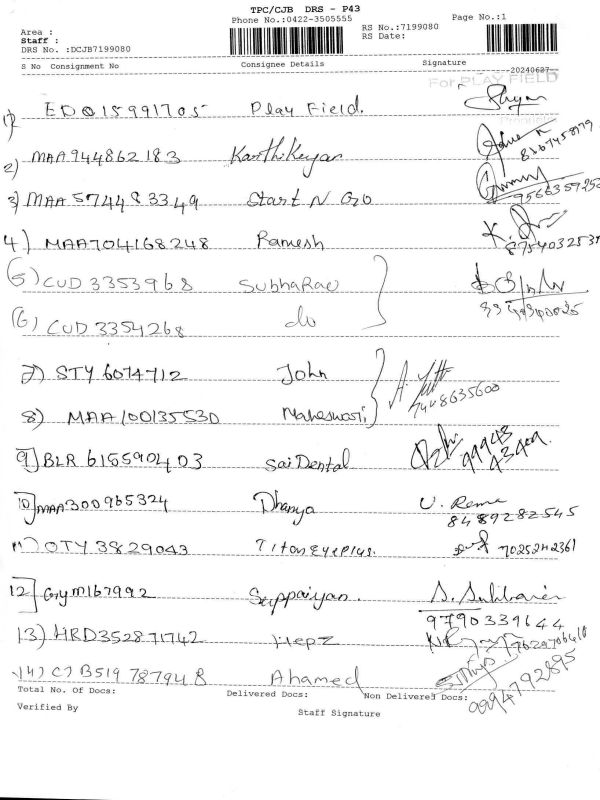 TPC/CJB DRS - P43
Phone No.:0422-3505555
Page No.:1
Area :
Staff :
DRS No. :DCJB7199080
RS No.:7199080
RS Date:
S No Consignment No Consignee Details Signature 20240627
For PLAY FIELD
1) ED015991705 Play Field.
2) MAA944862183 Karthikeyan
3) MAA574483349 Start N Go
4) MAA704168248 Ramesh
(5) CUD 3353968 SubhaRao
(6) CUD 3354268 do
7) STY 6074712 John 7408635600
8) MAA100135530 Maheswari
9) BLR 615590403 Sai Dental 99943 43409
10) MAA300965324 Dhanya 8489282545
11) OTY 3829043 Titan Eye plus. 7025242361
12) Gym167992 Suppaiyan. 9790339644
13) HRD352871742 Hepz
14) CJB519787948 Ahamed 9994792895
Total No. Of Docs: Delivered Docs: Non Delivered Docs:
Verified By Staff Signature